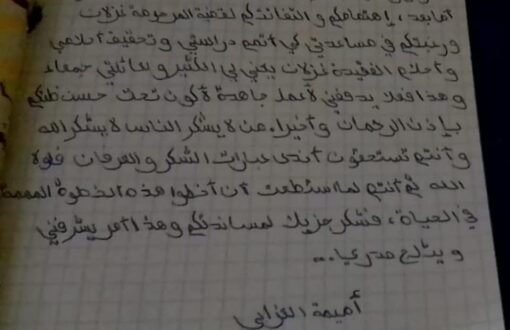 أما بعد، بإهتمامكم و التفاتتكم لقضية المرحومة غزلان
ورغبتكم في مساعدتي كي أتمم دراستي وتحقيق أحلامي
و أحلام الفقيدة غزلان يعني لي الكثير و لعائلتي جمعاء
وهذا فعلا يدفعني لأعمل جاهدة لأكون تحت حسن ظنكم
بإذن الرحمان وأخيرا. من لا يشكر الناس لا يشكر الله
وأنتم تستحقون أندى عبارات الشكر و العرفان فلولا
الله ثم أنتم لما استطعت أن أخطوا هذه الخطوة المهمة
في الحياة، فشكر جزيلا لمساندتكم وهذا أمر يشرفني
ويثلج صدري...
أميمة الغزاني